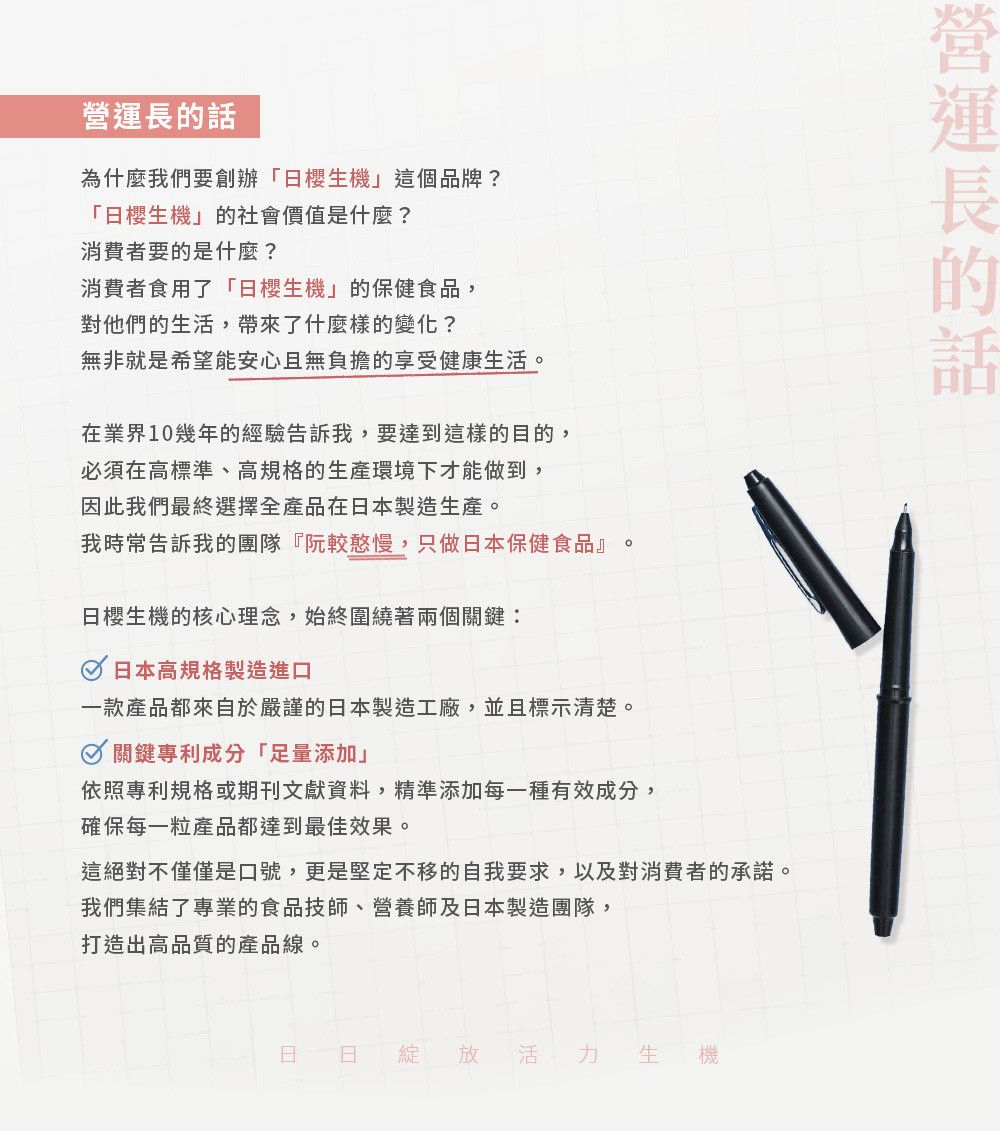 營運長的話
營運長的話
為什麼我們要創辦「日櫻生機」這個品牌？
「日櫻生機」的社會價值是什麼？
消費者要的是什麼？
消費者食用了「日櫻生機」的保健食品，
對他們的生活，帶來了什麼樣的變化？
無非就是希望能安心且無負擔的享受健康生活。
在業界10幾年的經驗告訴我，要達到這樣的目的，
必須在高標準、高規格的生產環境下才能做到，
因此我們最終選擇全產品在日本製造生產。
我時常告訴我的團隊『阮較憨慢，只做日本保健食品』。
日櫻生機的核心理念，始終圍繞著兩個關鍵：
日本高規格製造進口
一款產品都來自於嚴謹的日本製造工廠，並且標示清楚。
關鍵專利成分「足量添加」
依照專利規格或期刊文獻資料，精準添加每一種有效成分，
確保每一粒產品都達到最佳效果。
這絕對不僅僅是口號，更是堅定不移的自我要求，以及對消費者的承諾。
我們集結了專業的食品技師、營養師及日本製造團隊，
打造出高品質的產品線。
日日綻放活力生機